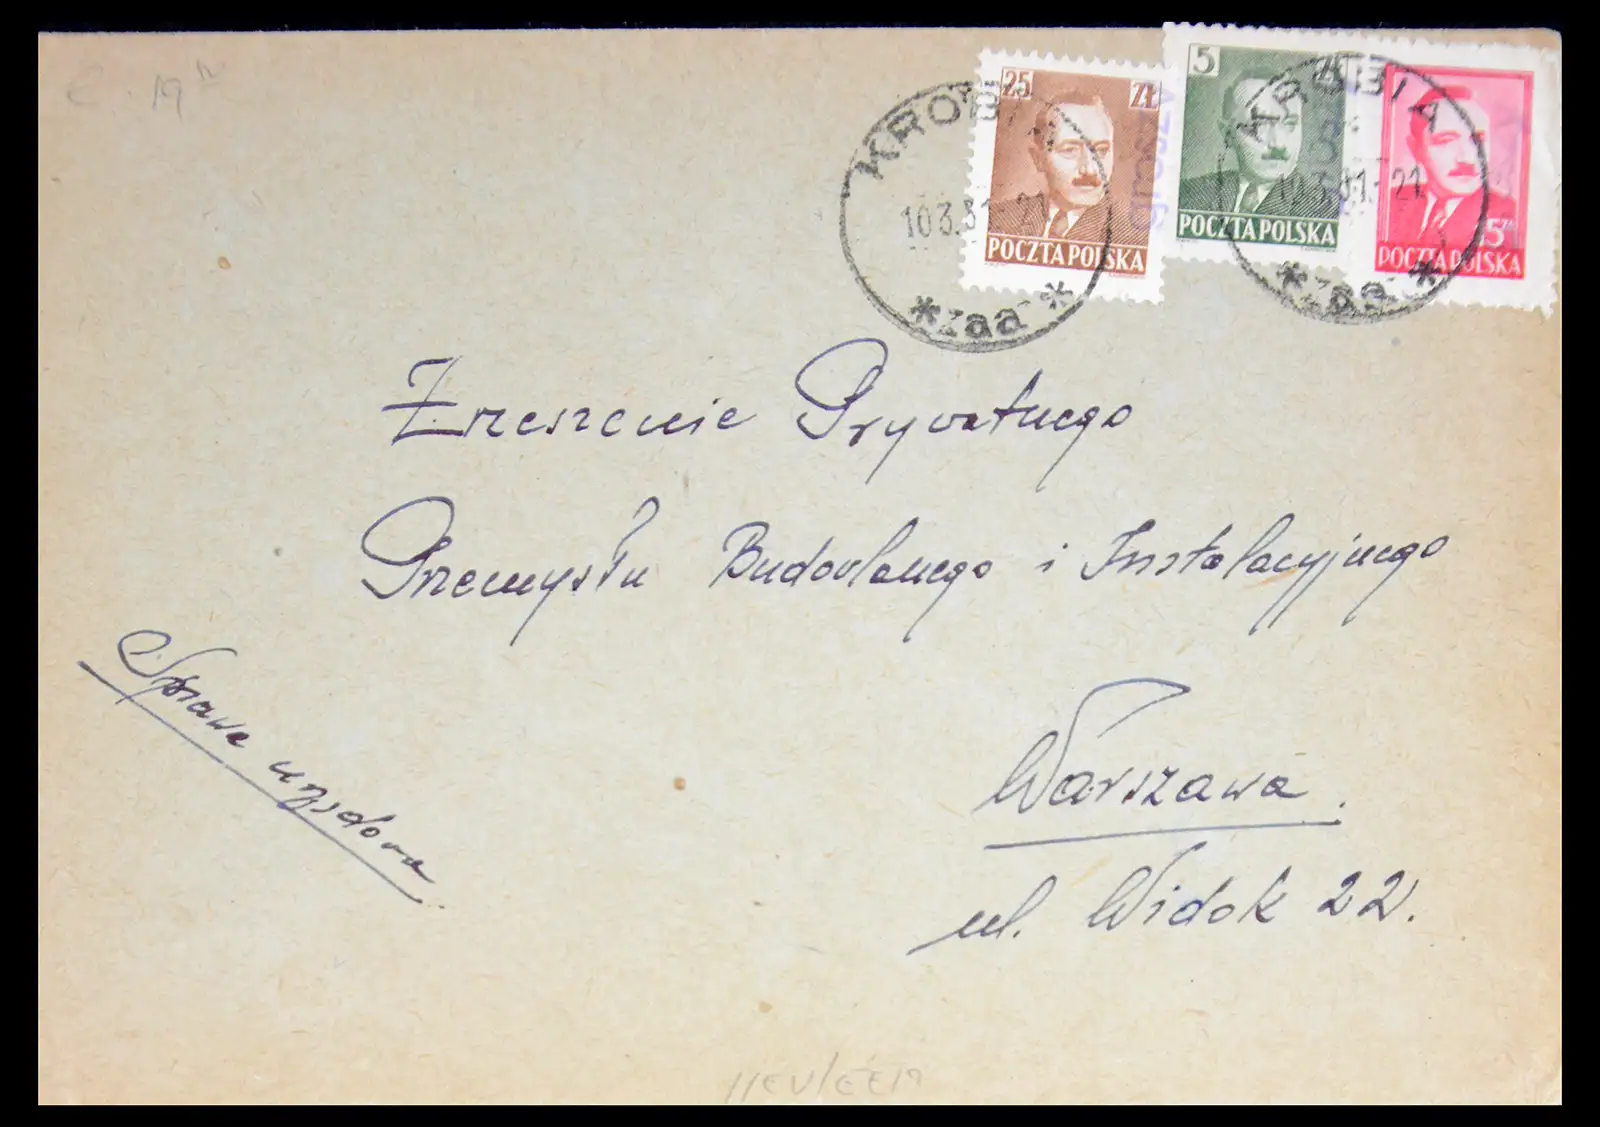 25 ZŁ
POCZTA POLSKA
groszy
5 ZŁ
POCZTA POLSKA
15 ZŁ
POCZTA POLSKA
KROBIA
10.3.51.-21
*zaa*
KROBIA
10.3.51.-21
*zaa*
Zrzeszenie Prywatnego
Przemysłu Budowlanego i Instalacyjnego
Sprawa
Warszawa.
ul. Widok 22.